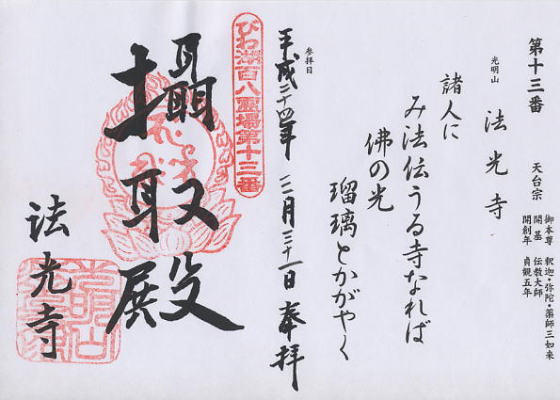 第十三番
天台宗
御本尊 釈迦・弥陀・薬師三如来
開基 伝教大師
開創年 貞観五年
光明山
法光寺
諸人に
み法伝うる寺なれば
佛の光
瑠璃とかがやく
参拝日
平成二十四年 三月二十一日 奉拝
びわ湖百八霊場第十三番
攝取殿
法光寺